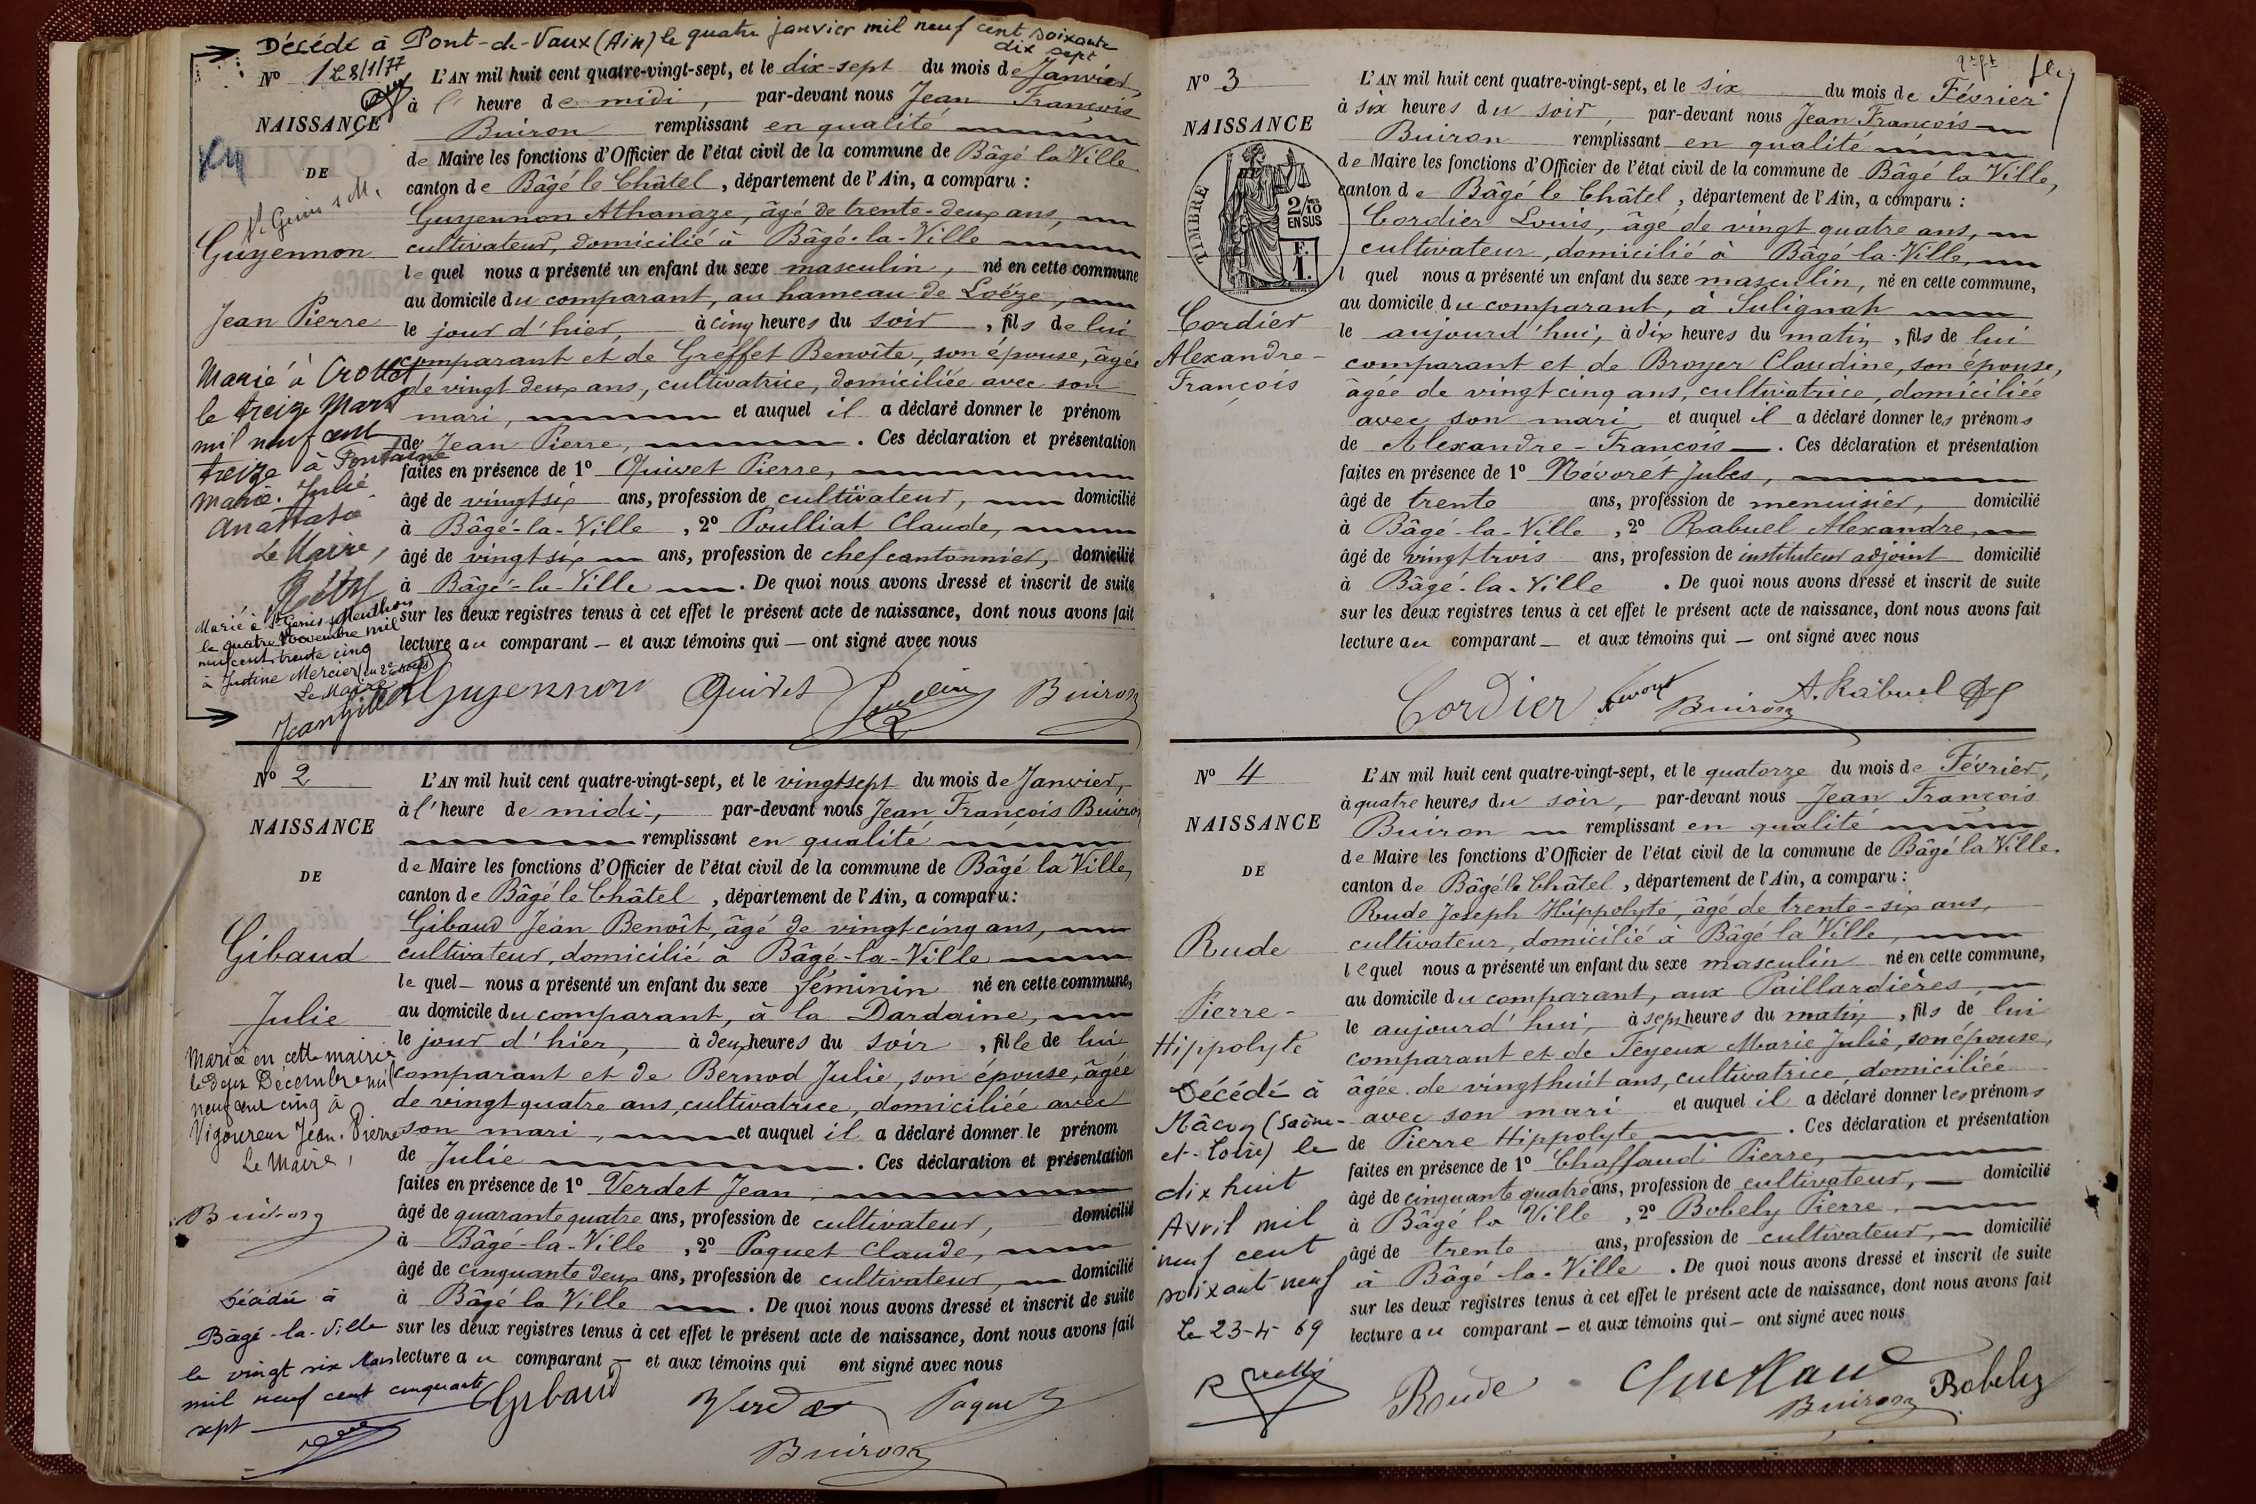 Décédé à Pont-de-Vaux (Ain) le quatre janvier mil neuf cent soixante
dix sept
Nº 1 Le 8/1/77
NAISSANCE
DE
St Genis s M.
Guyennon
Jean Pierre
Marié à Crottet
le treize Mars
mil neuf cent
treize à Fontaine
Marie. Julie
Anastasie
Le Maire,
Marié à St Genis s/Menthon
le quatre Novembre mil
neuf cent trente cinq
à Justine Mercier (en 2e noces)
Le Maire
L'AN mil huit cent quatre-vingt-sept, et le dix-sept du mois de Janvier,
à l' heure de midi, par-devant nous Jean François
Buiron remplissant en qualité
de Maire les fonctions d'Officier de l'état civil de la commune de Bâgé la Ville
canton de Bâgé le Châtel, département de l'Ain, a comparu :
Guyennon Athanaze, âgé de trente-deux ans,
cultivateur, domicilié à Bâgé-la-Ville
le quel nous a présenté un enfant du sexe masculin, né en cette commune
au domicile du comparant, au hameau de Loëze,
le jour d'hier, à cinq heures du soir, fils de lui
comparant et de Greffet Benoîte, son épouse, âgée
de vingt deux ans, cultivatrice, domiciliée avec son
mari, et auquel il a déclaré donner le prénom
de Jean Pierre, . Ces déclaration et présentation
faites en présence de 1º Quivet Pierre,
âgé de vingt six ans, profession de cultivateur, domicilié
à Bâgé-la-Ville, 2º Poulliat Claude,
âgé de vingt six ans, profession de chef cantonnier, domicilié
à Bâgé-la-Ville . De quoi nous avons dressé et inscrit de suite
sur les deux registres tenus à cet effet le présent acte de naissance, dont nous avons fait
lecture au comparant — et aux témoins qui — ont signé avec nous
Guyennon Quivet Buiron
Nº 2
NAISSANCE
DE
Gibaud
Julie
Mariée en cette mairie
le deux Décembre mil
neuf cent cinq à
Vigoureux Jean-Pierre
Le Maire,
Buiron
Décédée à
Bâgé-la-Ville
le vingt six Mars
mil neuf cent cinquante
sept
L'AN mil huit cent quatre-vingt-sept, et le vingt sept du mois de Janvier,
à l'heure de midi, par-devant nous Jean François Buiron
remplissant en qualité
de Maire les fonctions d'Officier de l'état civil de la commune de Bâgé la Ville,
canton de Bâgé le Châtel, département de l'Ain, a comparu :
Gibaud Jean Benoît, âgé de vingt cinq ans,
cultivateur, domicilié à Bâgé-la-Ville
le quel — nous a présenté un enfant du sexe féminin né en cette commune,
au domicile du comparant, à la Dardaine,
le jour d'hier, à deux heures du soir, fille de lui
comparant et de Bernod Julie, son épouse, âgée
de vingt quatre ans, cultivatrice, domiciliée avec
son mari, et auquel il a déclaré donner le prénom
de Julie . Ces déclaration et présentation
faites en présence de 1º Verdet Jean,
âgé de quarante quatre ans, profession de cultivateur, domicilié
à Bâgé-la-Ville, 2º Paquet Claude,
âgé de cinquante deux ans, profession de cultivateur, domicilié
à Bâgé la Ville . De quoi nous avons dressé et inscrit de suite
sur les deux registres tenus à cet effet le présent acte de naissance, dont nous avons fait
lecture au comparant — et aux témoins qui ont signé avec nous
Gibaud Verdet Paquet
Buiron
Nº 3
NAISSANCE
TIMBRE
2/10 EN SUS
F. 1.
Cordier
Alexandre-
François
L'AN mil huit cent quatre-vingt-sept, et le six du mois de Février
à six heures du soir, par-devant nous Jean François
Buiron remplissant en qualité
de Maire les fonctions d'Officier de l'état civil de la commune de Bâgé la Ville,
canton de Bâgé le Châtel, département de l'Ain, a comparu :
Cordier Louis, âgé de vingt quatre ans,
cultivateur, domicilié à Bâgé la Ville,
l quel nous a présenté un enfant du sexe masculin, né en cette commune,
au domicile du comparant, à Sulignat
le aujourd'hui, à dix heures du matin, fils de lui
comparant et de Broyer Claudine, son épouse,
âgée de vingt cinq ans, cultivatrice, domiciliée
avec son mari et auquel il a déclaré donner les prénoms
de Alexandre-François . Ces déclaration et présentation
faites en présence de 1º Névoret Jules,
âgé de trente ans, profession de menuisier, domicilié
à Bâgé-la-Ville, 2º Rabuel Alexandre,
âgé de vingt trois ans, profession de instituteur adjoint domicilié
à Bâgé-la-Ville . De quoi nous avons dressé et inscrit de suite
sur les deux registres tenus à cet effet le présent acte de naissance, dont nous avons fait
lecture au comparant — et aux témoins qui — ont signé avec nous
Cordier Buiron A. Rabuel
Nº 4
NAISSANCE
DE
Rude
Pierre-
Hippolyte
Décédé à
Mâcon (Saône-
et-Loire) le
dix huit
Avril mil
neuf cent
soixante neuf
Le 23-4-69
L'AN mil huit cent quatre-vingt-sept, et le quatorze du mois de Février,
à quatre heures du soir, par-devant nous Jean François
Buiron remplissant en qualité
de Maire les fonctions d'Officier de l'état civil de la commune de Bâgé la Ville.
canton de Bâgé le Châtel, département de l'Ain, a comparu :
Rude Joseph Hippolyte, âgé de trente-six ans,
cultivateur, domicilié à Bâgé la Ville,
lequel nous a présenté un enfant du sexe masculin né en cette commune,
au domicile du comparant, aux Paillardières,
le aujourd'hui, à sept heures du matin, fils de lui
comparant et de Teyeux Marie Julie, son épouse,
âgée de vingt huit ans, cultivatrice, domiciliée
avec son mari et auquel il a déclaré donner les prénoms
de Pierre Hippolyte . Ces déclaration et présentation
faites en présence de 1º Chaffaud Pierre,
âgé de cinquante quatre ans, profession de cultivateur, domicilié
à Bâgé la Ville, 2º Bobely Pierre,
âgé de trente ans, profession de cultivateur, domicilié
à Bâgé-la-Ville . De quoi nous avons dressé et inscrit de suite
sur les deux registres tenus à cet effet le présent acte de naissance, dont nous avons fait
lecture au comparant — et aux témoins qui — ont signé avec nous
Rude Chaffaud Buiron Bobely